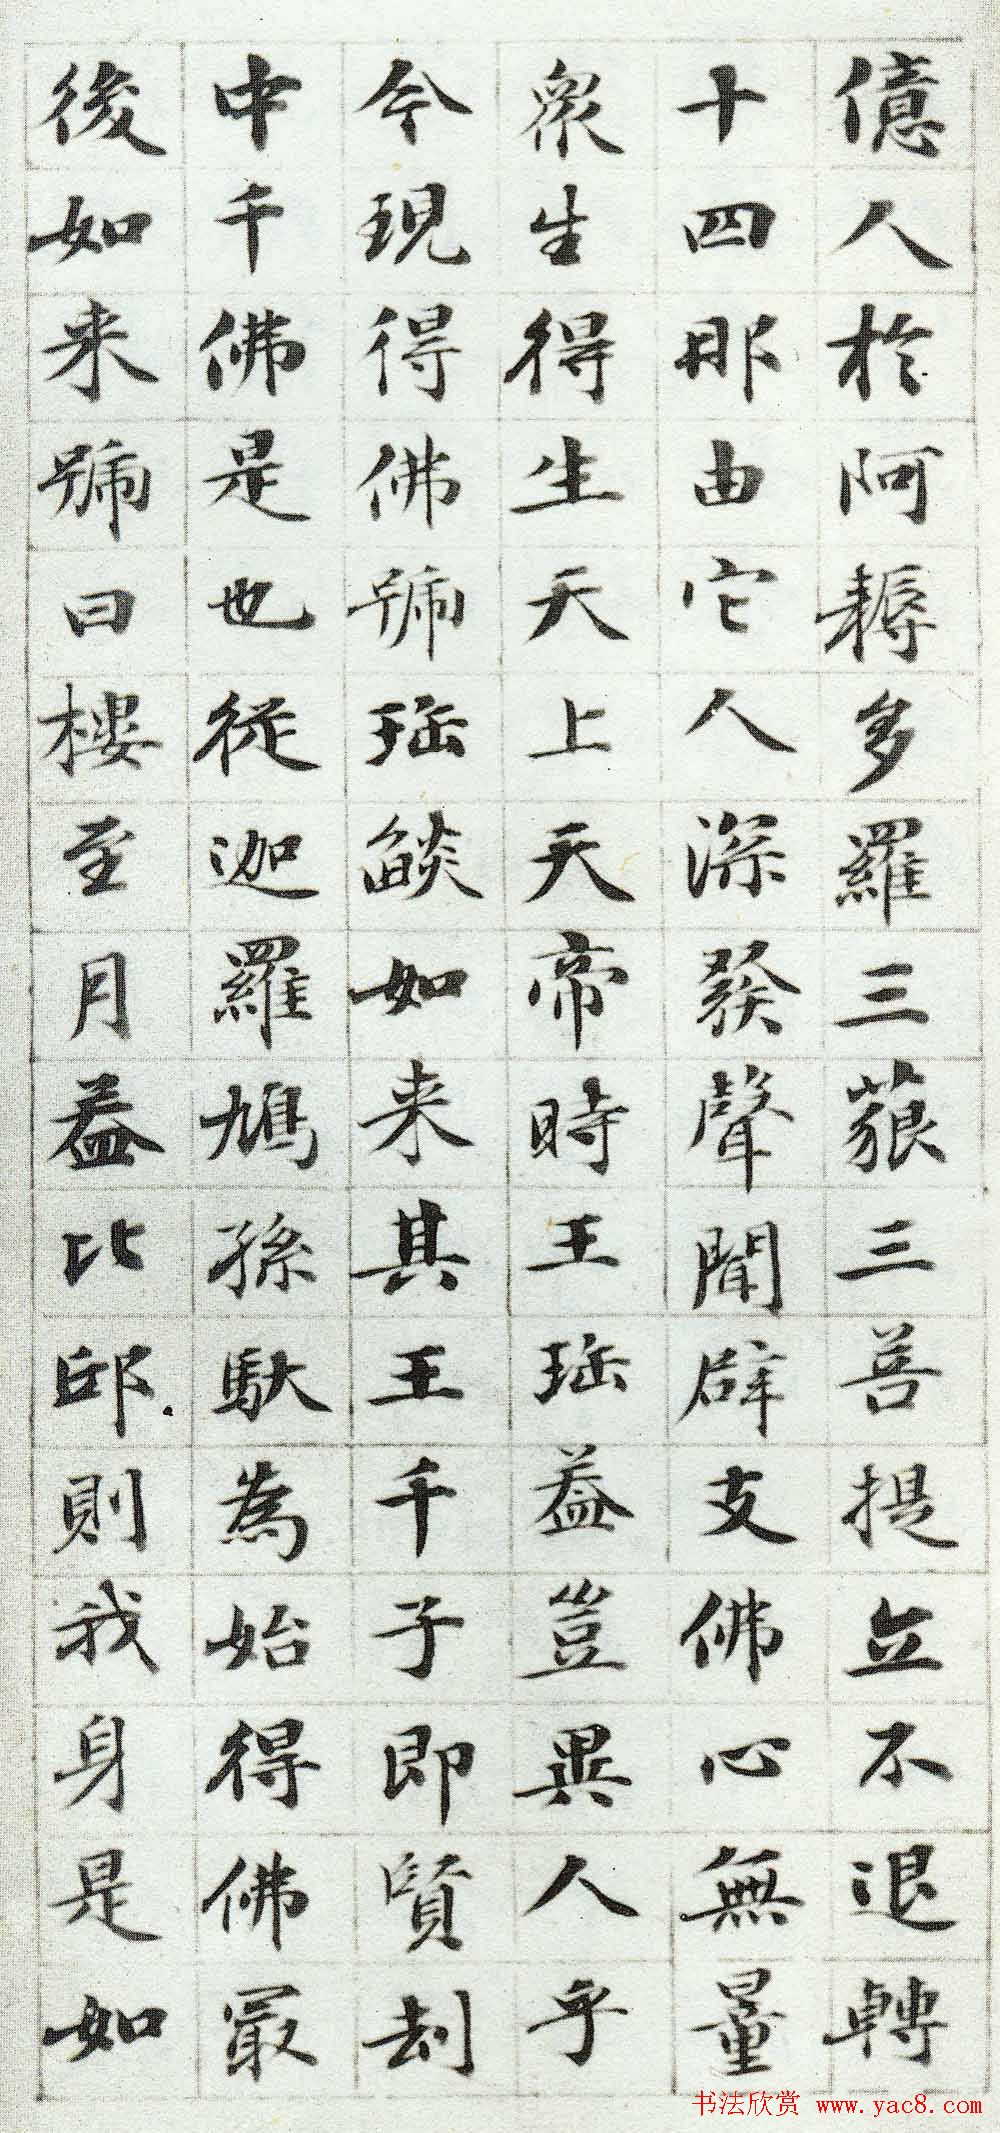 億人於阿耨多羅三藐三菩提立不退轉
十四那由它人深發聲聞辟支佛心無量
衆生得生天上天帝時王珤葢豈異人乎
今現得佛號珤燄如来其王千子即賢刦
中千佛是也從迦羅鳩孫馱為始得佛冣
後如来號曰樓至月葢比邱則我身是如
书法欣赏 www.yac8.com